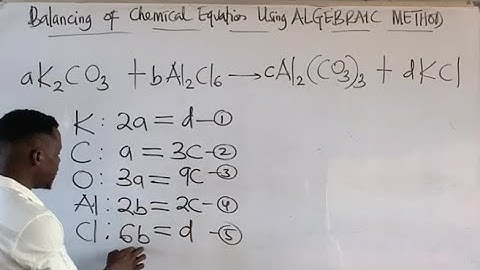 Balancing of Chemical Equation Using ALGEBRAIC METHOD
aK₂CO₃ + bAl₂Cl₆ → cAl₂(CO₃)₃ + dKCl
K: 2a = d —①
C: a = 3c —②
O: 3a = 9c —③
Al: 2b = 2c —④
Cl: 6b = d —⑤